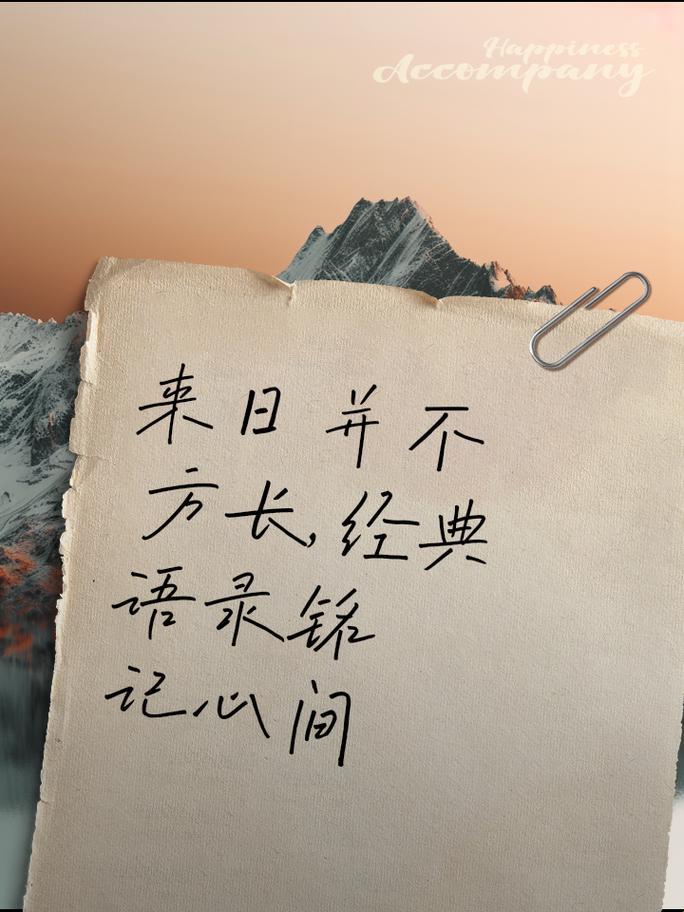 Happiness
Accompany
来日并不
方长,经典
语录铭
记心间